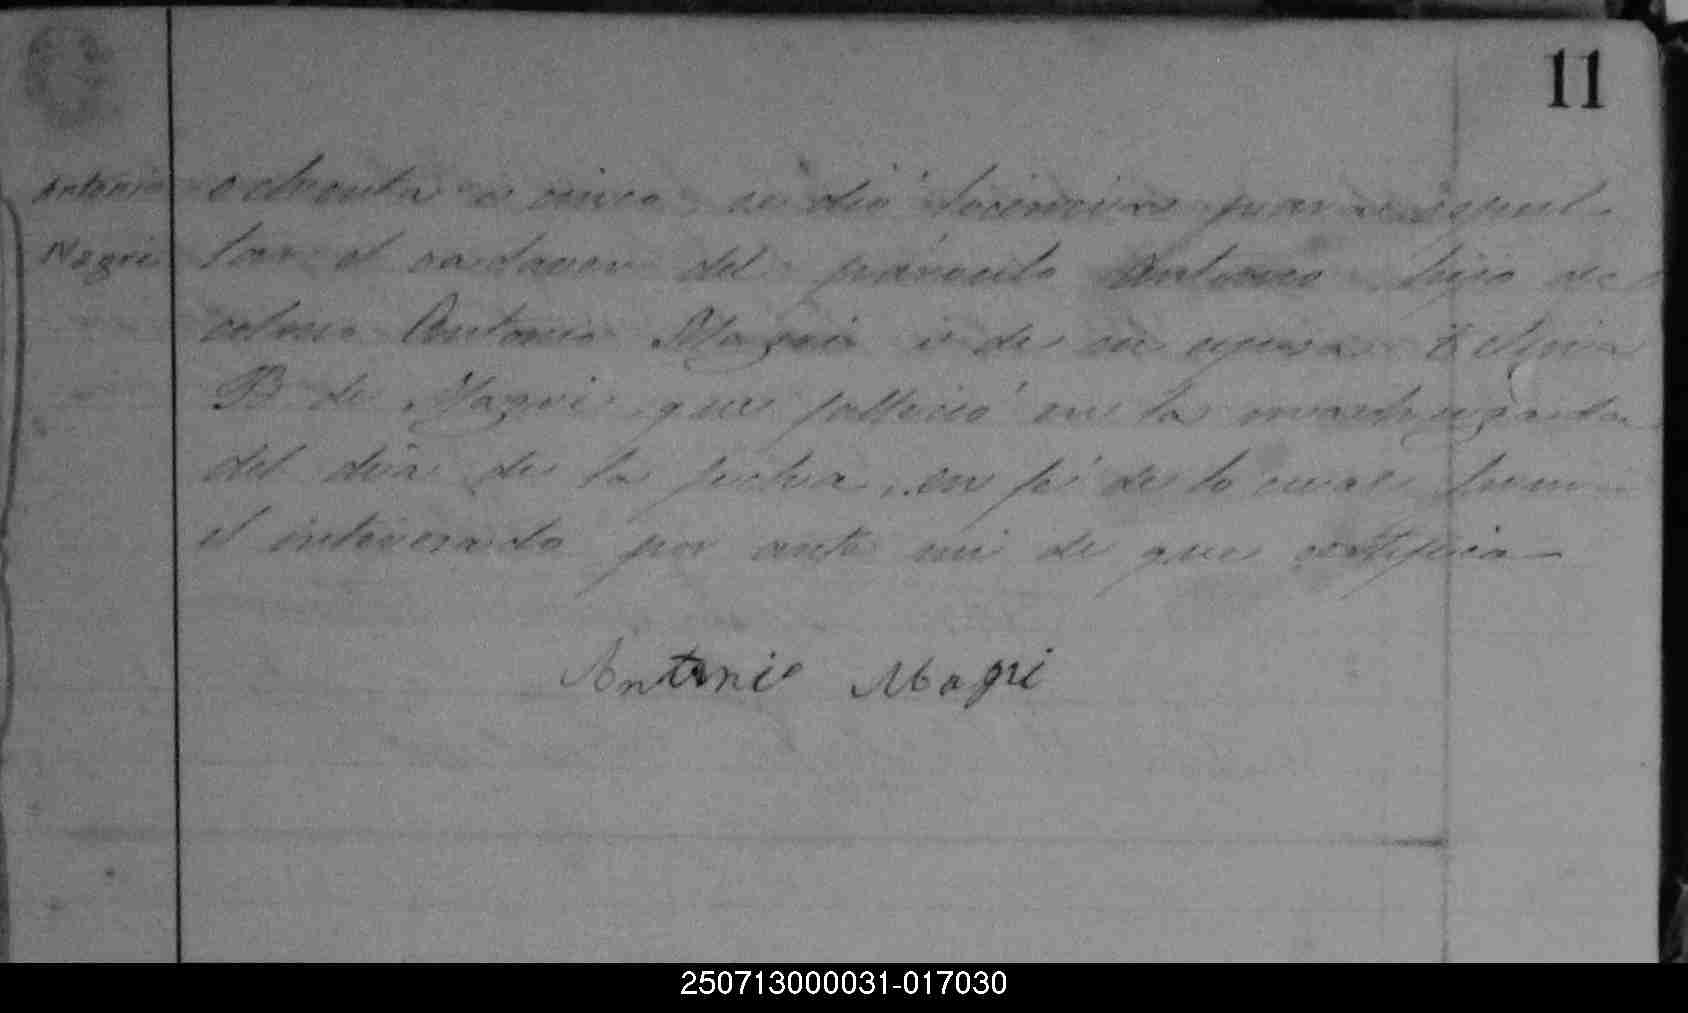 11
Antonio
Magri
ochenta i cinco, se dió licencia para sepul-
tar el cadaver del párvulo Antonio hijo de
Antonio Magri i de su esposa
B de Magri, que falleció en la madrugada
del dia de la fecha, en fé de lo cual firma
el interesado por ante mi de que certifica
Antonio Magri
250713000031-017030